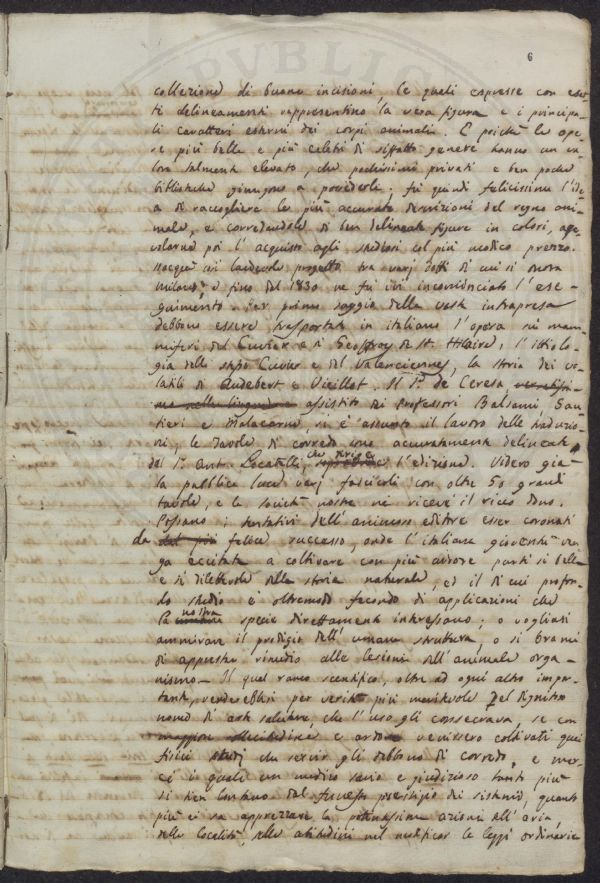 6
collezione di buone incisioni, le quali espresse con esat-
ti delineamenti rappresentino la vera figura e i principa-
li caratteri esterni dei corpi animali. E poichè le ope-
re più belle e più celebri di siffatto genere hanno un va-
lore talmente elevato, che pochissimi privati e ben poche
biblioteche giungono a possederle; fu quindi felicissima l'ide-
a di raccogliere le più accurate descrizioni del regno ani-
male, e corredandole di ben delineate figure in colori, age-
volarne poi l'acquisto agli studiosi col più modico prezzo.
Nacque così lodevole progetto tra varj dotti di cui si onora
Milano, e fino dal 1830 ne fu ivi incominciato l'ese-
guimento. Per primo saggio della vasta intrapresa
debbono essere trasportate in italiano l'opera sui mam-
miferi del Cuvier e di Geoffroy de St. Hilaire, l'ittiolo-
gia dello stesso Cuvier e del Valenciennes, la storia dei vo-
latili di Audebert e Vieillot. Il Sr. de Ceresa,
assistito dai Professori Balsami, Gau-
tieri e Malacarne, si è assunto il lavoro delle traduzio-
ni; le tavole di corredo sono accuratamente delineate
dal Sr. Ant. Locatelli, che dirige l'edizione. Videro già
la pubblica luce varj fascicoli con oltre 50 grandi
tavole, e la società nostra ne ricevè il ricco dono.
Possano i tentativi dell'animoso editore esser coronati
da del più felice successo, onde l'italiana gioventù ven-
ga eccitata a coltivare con più ardore parti sì belle
e sì dilettevoli della storia naturale, ed il di cui profon-
do studio è oltremodo fecondo di applicazioni che
la nostra umana specie direttamente interessano; o vogliasi
ammirare il prodigio dell'umana struttura, o si brami
di apprestar rimedio alle lesioni dell'animale orga-
nismo. Il qual ramo scientifico, oltre ad ogni altro impor-
tante, renderebbesi per verità più meritevole del dignitoso
nome di arte salutare, che l'uso gli consecrava, se con
maggiore sollecitudine e ardore venissero coltivati quei
fisici studj che servir gli debbono di corredo, e mer-
cè i quali un medico savio e giudizioso tanto più
si tien lontano dal funesto prestigio dei sistemi, quanto
più ei sa apprezzare la potentissima azione dell'aria,
delle località, delle abitudini nel modificar le leggi ordinarie